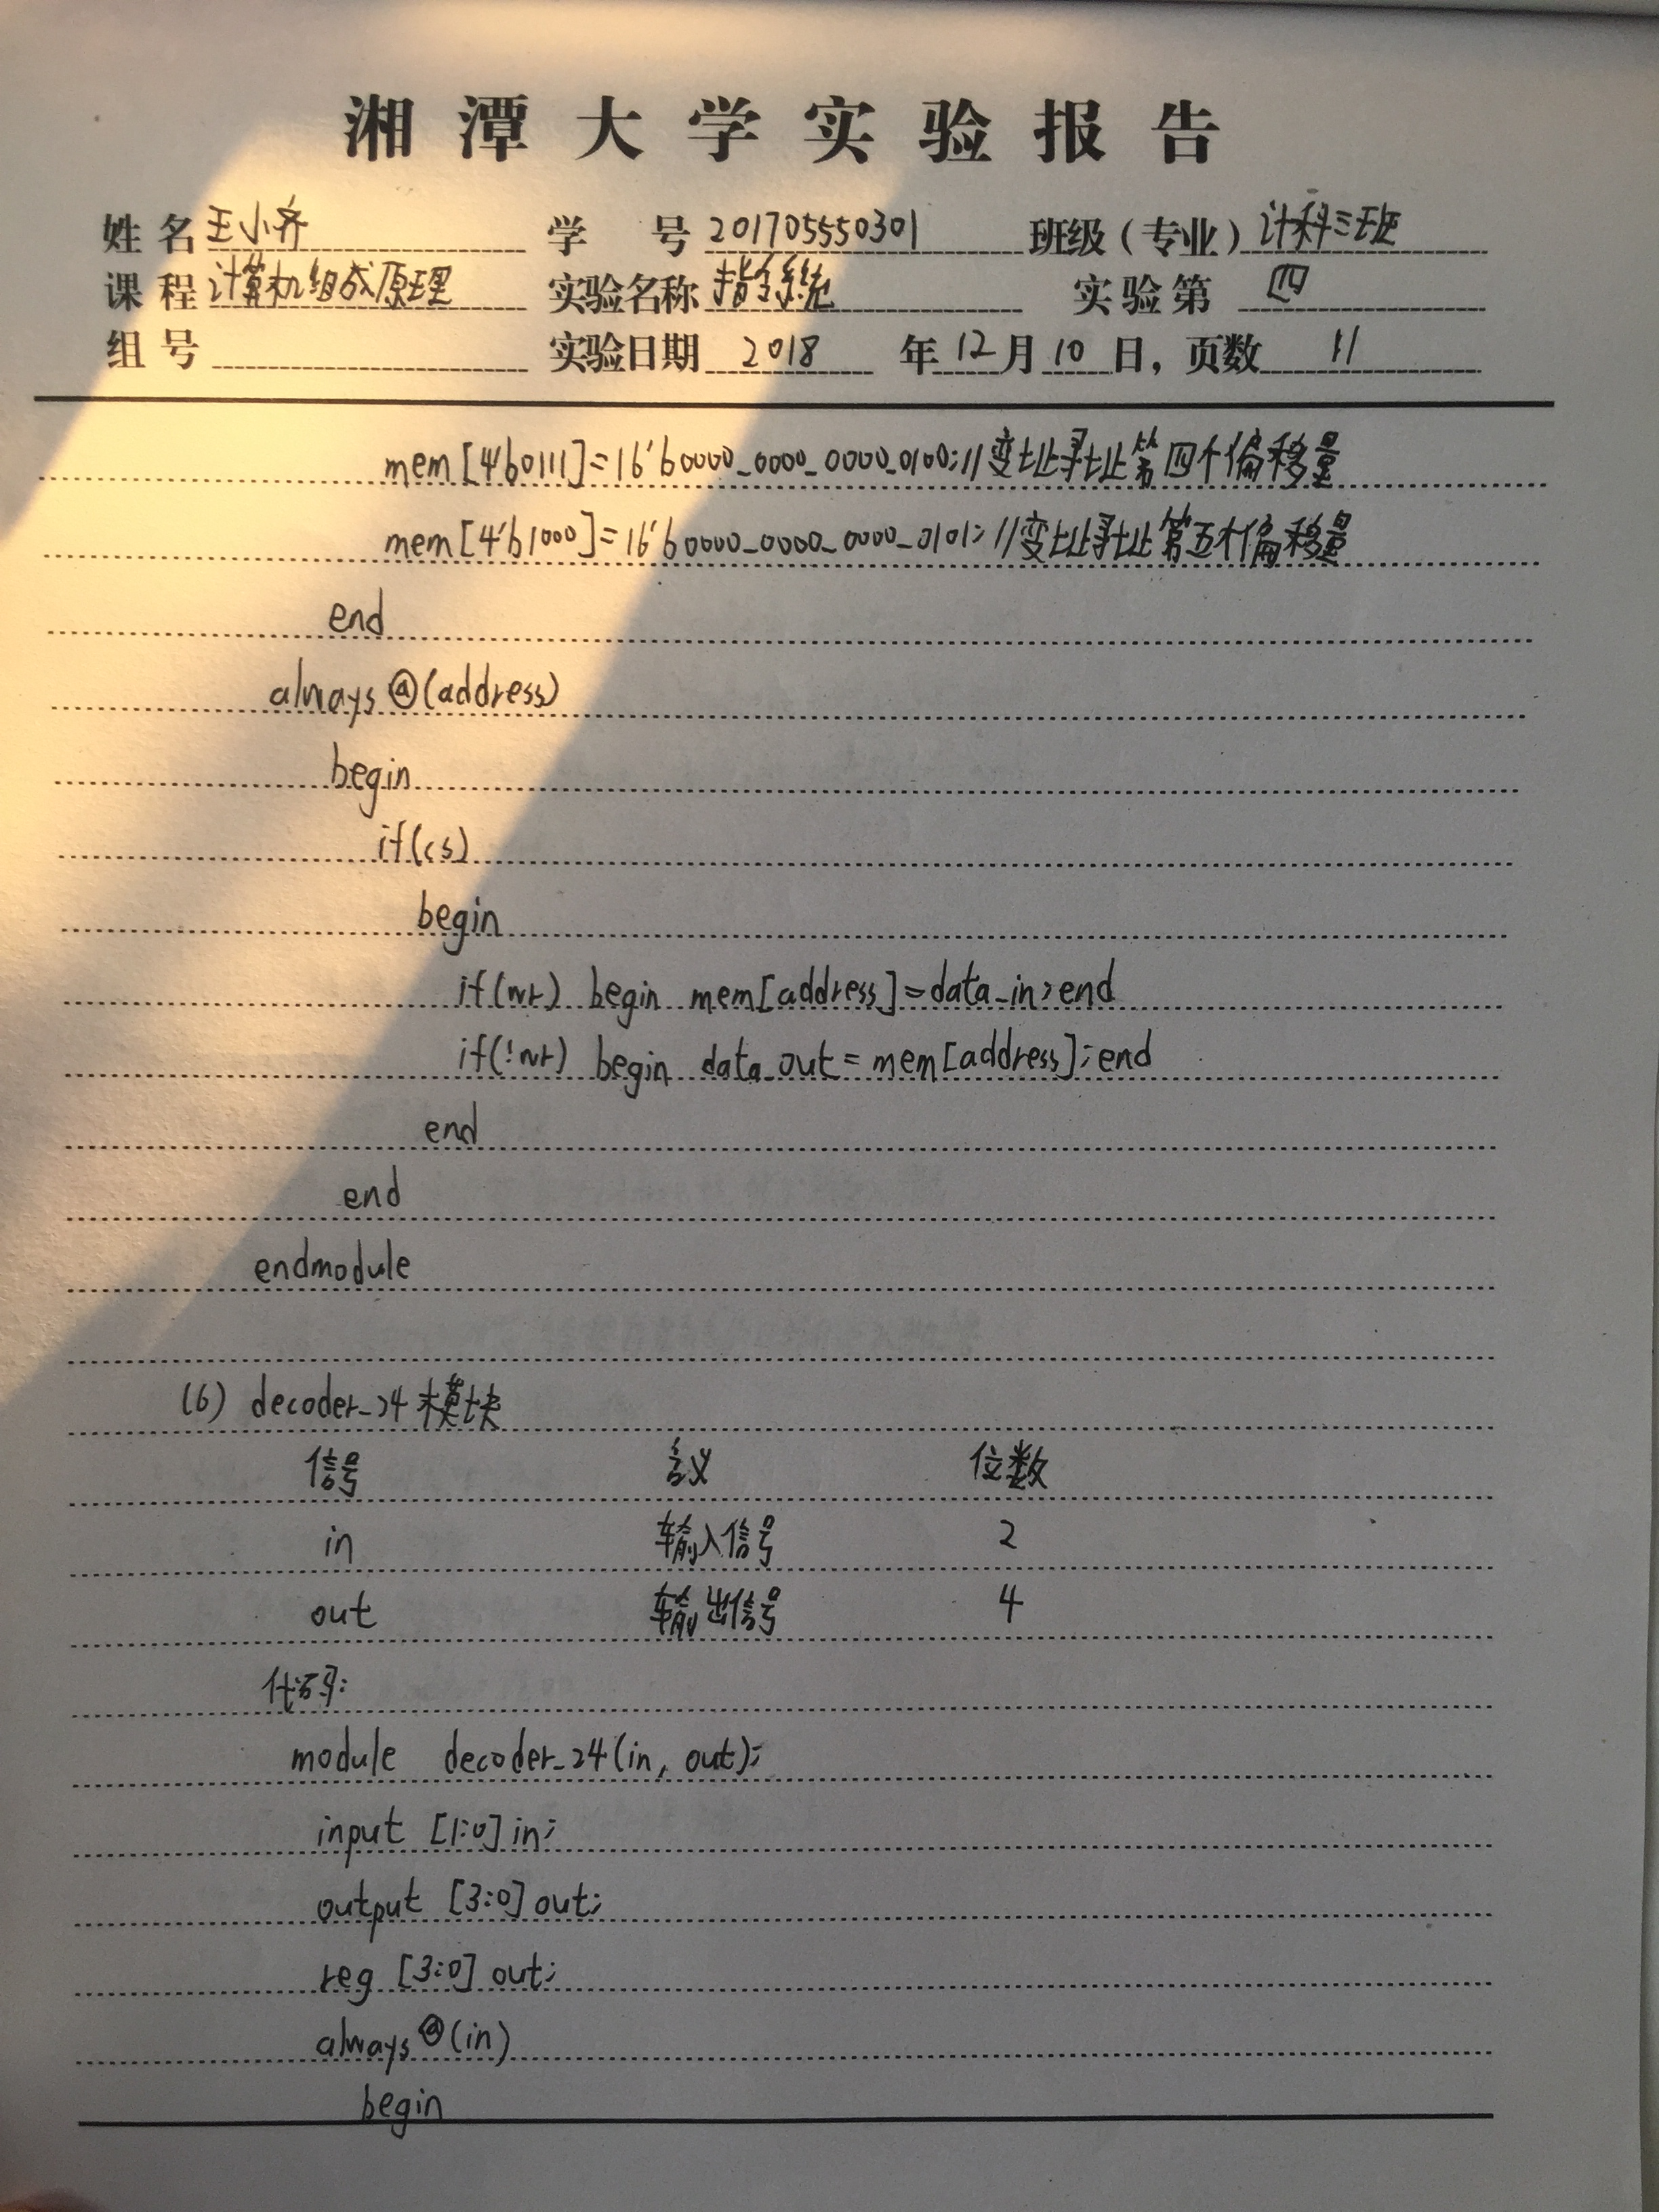 湘潭大学实验报告
姓名 王小齐 学号 201705550301 班级（专业） 计科三班
课程 计算机组成原理 实验名称 指令系统 实验第 四
组号 实验日期 2018 年 12 月 10 日，页数 11
mem[4'b0111]=16'b0000_0000_0000_0100;//变址寻址第四个偏移量
mem[4'b1000]=16'b0000_0000_0000_0101;//变址寻址第五个偏移量
end
always @(address)
begin
if(cs)
begin
if(wr) begin mem[address]=data_in;end
if(!wr) begin data_out=mem[address];end
end
end
endmodule
(6) decoder_24模块
信号 含义 位数
in 输入信号 2
out 输出信号 4
代码:
module decoder_24(in, out);
input [1:0] in;
output [3:0] out;
reg [3:0] out;
always @(in)
begin